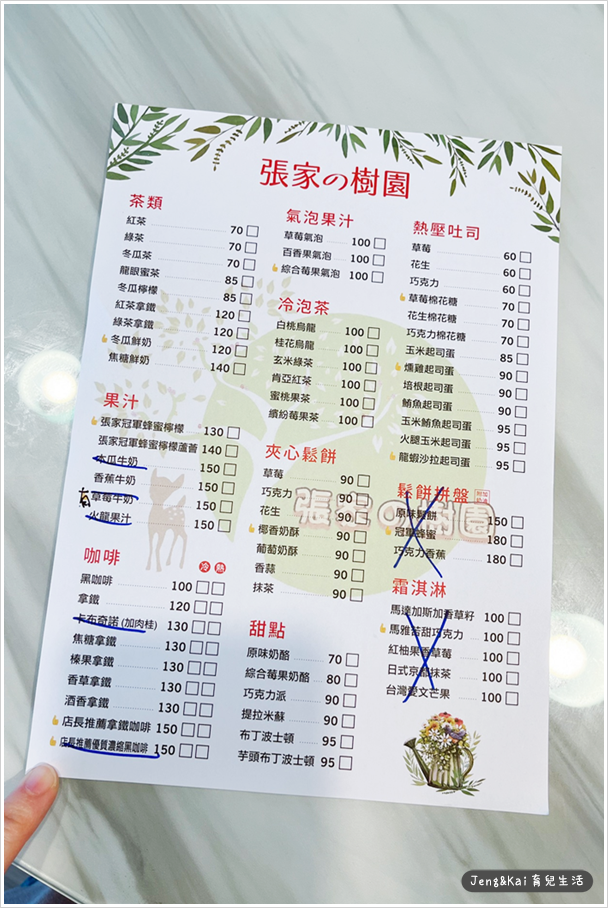 張家の樹園
茶類
紅茶 70
綠茶 70
冬瓜茶 70
龍眼蜜茶 85
冬瓜檸檬 85
紅茶拿鐵 120
綠茶拿鐵 120
冬瓜鮮奶 120
焦糖鮮奶 140
果汁
張家冠軍蜂蜜檸檬 130
張家冠軍蜂蜜檸檬蘆薈 140
木瓜牛奶 150
香蕉牛奶 150
有 草莓牛奶 150
火龍果汁 150
咖啡 冷 熱
黑咖啡 100
拿鐵 120
卡布奇諾 (加肉桂) 130
焦糖拿鐵 130
榛果拿鐵 130
香草拿鐵 130
酒香拿鐵 130
店長推薦拿鐵咖啡 150
店長推薦優質濃縮黑咖啡 150
氣泡果汁
草莓氣泡 100
百香果氣泡 100
綜合莓果氣泡 100
冷泡茶
白桃烏龍 100
桂花烏龍 100
玄米綠茶 100
肯亞紅茶 100
蜜桃果茶 100
繽紛莓果茶 100
夾心鬆餅
草莓 90
巧克力 90
花生 90
椰香奶酥 90
葡萄奶酥 90
香蒜 90
抹茶 90
甜點
原味奶酪 70
綜合莓果奶酪 80
巧克力派 90
提拉米蘇 90
布丁波士頓 95
芋頭布丁波士頓 95
熱壓吐司
草莓 60
花生 60
巧克力 60
草莓棉花糖 70
花生棉花糖 70
巧克力棉花糖 70
玉米起司蛋 85
燻雞起司蛋 90
培根起司蛋 90
鮪魚起司蛋 90
玉米鮪魚起司蛋 95
火腿玉米起司蛋 95
龍蝦沙拉起司蛋 95
鬆餅拼盤
原味鬆餅 150
冠軍蜂蜜 180
巧克力香蕉 180
張家の樹園
霜淇淋
馬達加斯加香草籽 100
馬雅苦甜巧克力 100
紅柚果香草莓 100
日式京都抹茶 100
台灣愛文芒果 100
Jeng&Kai 育兒生活